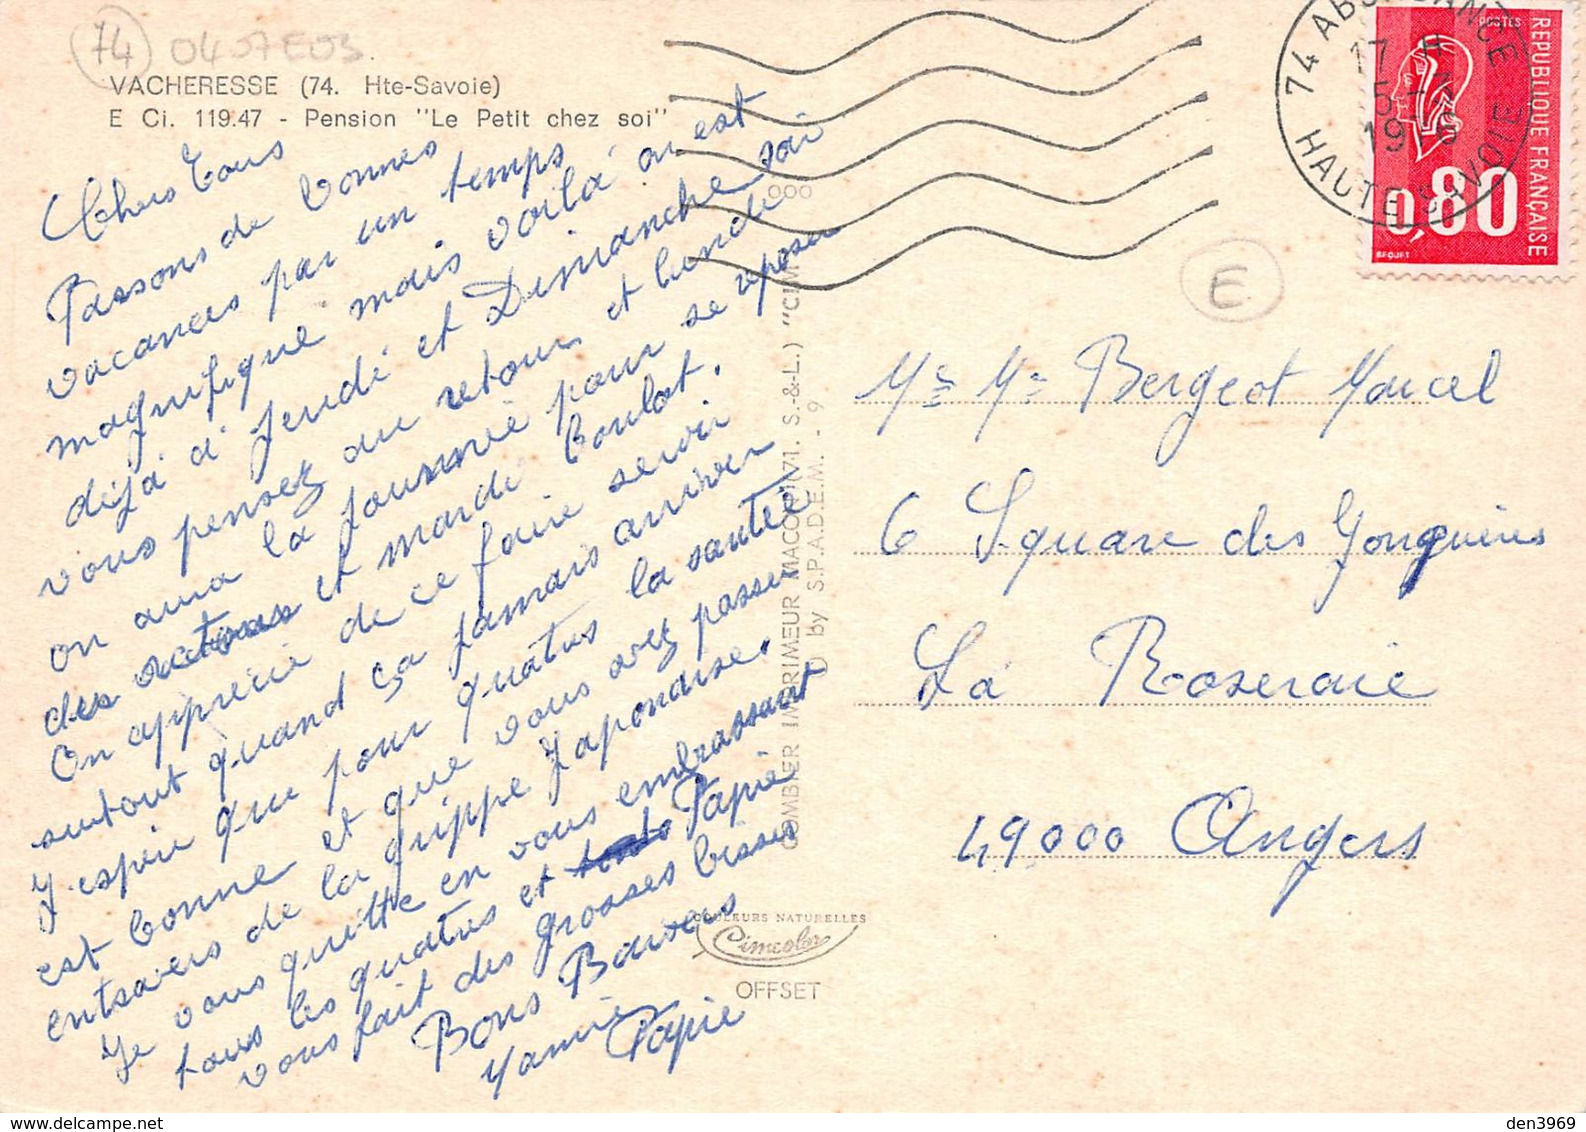 74 04 07E03
VACHERESSE (74. Hte-Savoie)
E Ci. 119.47 - Pension "Le Petit chez soi"
Chers Tous
Passons de bonnes
vacances par un temps
magnifique mais voilà on est
déjà à jeudi et Dimanche soir
vous pensez au retour et lundi
on aura la journée pour se reposer
des retours et mardi boulot.
On apprecie de ce faire servir
surtout quand ça jamais arriver
J'espère que pour quatres la santée
est bonne et que vous avez passer
entravers de la grippe Japonaise.
Je vous quitte en vous embrassant
tous les quatres et Papie
vous fait des grosses bisses
Bons Baisers
Mamie Papie
COMBIER IMPRIMEUR MACON (71. S.-&-L.) "CIM"
by S.P.A.D.E.M. - 9
COULEURS NATURELLES
Cimcolor
OFFSET
74 ABONDANCE
17 H
5
19
HAUTE SAVOIE
POSTES
REPUBLIQUE FRANÇAISE
0,80
BEQUET
E
Mr Me Bergeot Marcel
6 Square des Jonquières
La Roseraie
49000 Angers
den3969